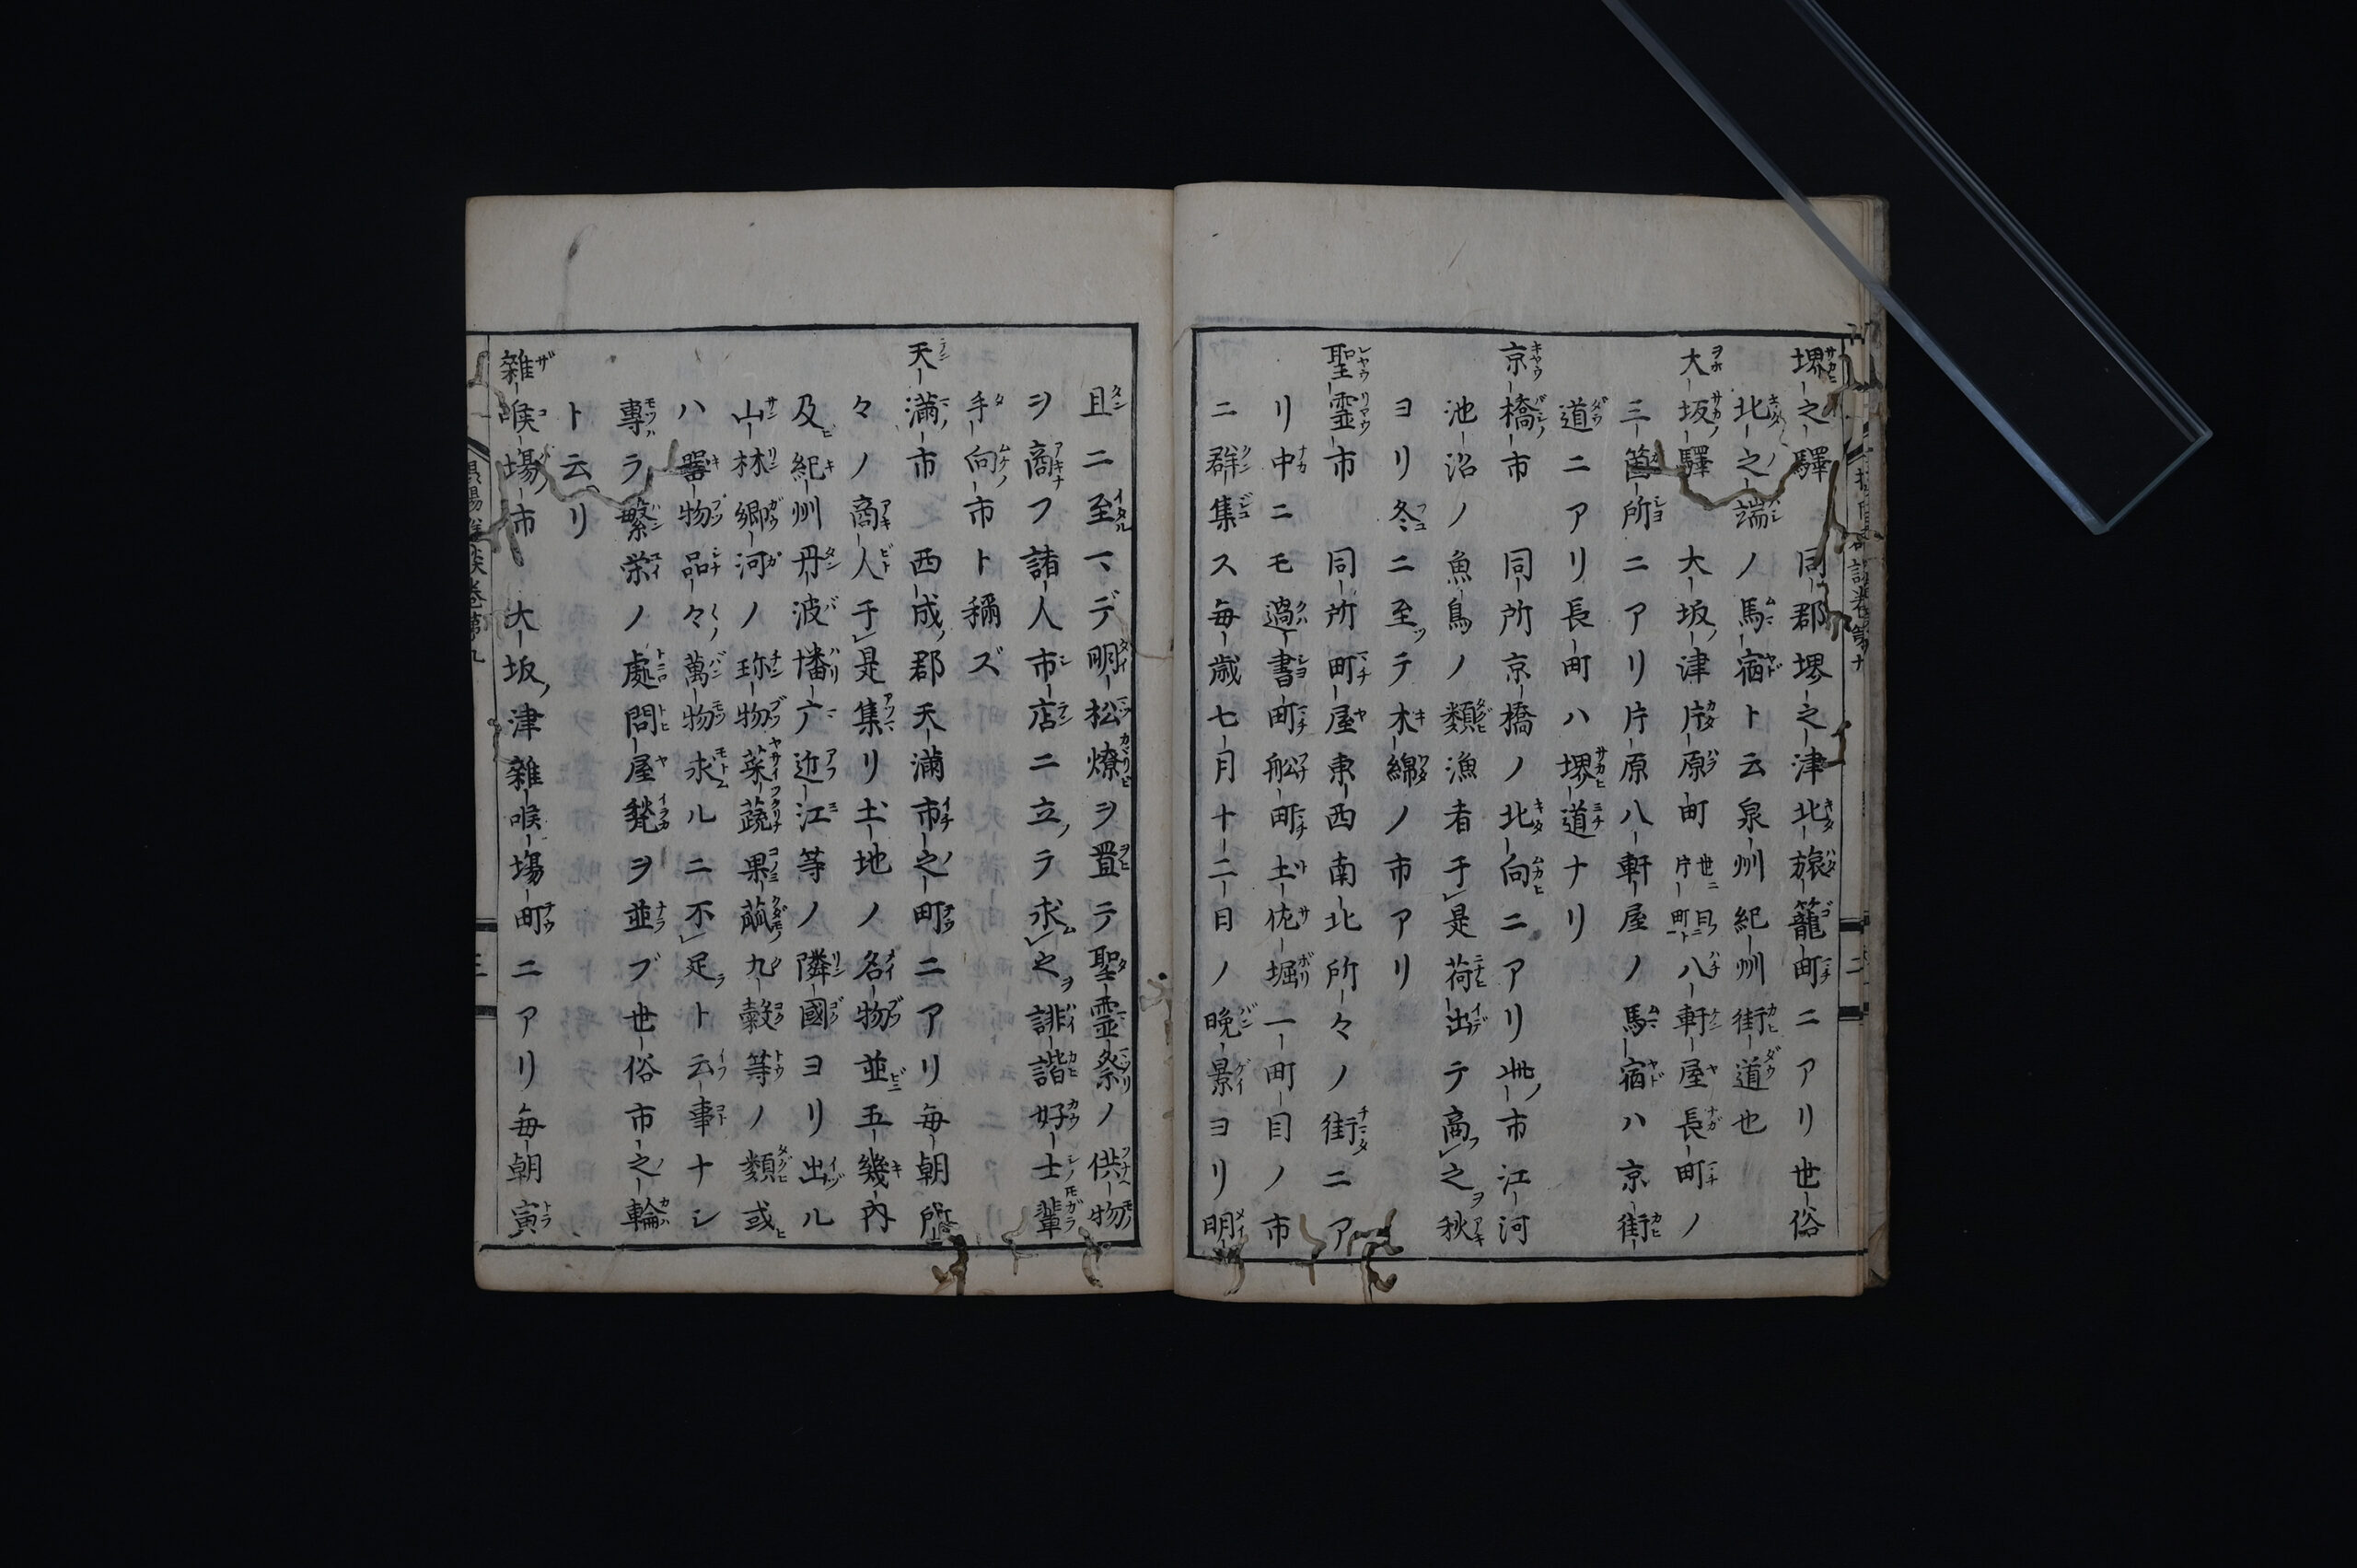 堺之驛　同郡堺之津北旅籠町ニアリ世俗
北之端ノ馬宿ト云泉州紀州街道也
大坂驛　大坂津片原町世ニ曰フ片町ト八軒屋長町ノ
三箇所ニアリ片原八軒屋ノ馬宿ハ京街
道ニアリ長町ハ堺道ナリ
京橋市　同所京橋ノ北向ニアリ此市江河
池沼ノ魚鳥ノ類漁者于是荷出テ商之秋
ヨリ冬ニ至テ木綿ノ市アリ
聖霊市　同所町屋東西南北所々ノ街ニア
リ中ニモ過書町舩町土佐堀一町目ノ市
ニ群集ス毎歳七月十二日ノ晩景ヨリ明
旦ニ至マデ明松燎ヲ置テ聖霊祭ノ供物
ヲ商フ諸人市店ニ立テ求之誹諧好士輩
手向市ト稱ズ
天満市　西成郡天満市之町ニアリ毎朝所
々ノ商人于是集リ土地ノ名物並五幾内
及紀州丹波播广近江等ノ隣國ヨリ出ル
山林郷河ノ珎物菜蔬果蓏九穀等ノ類或
ハ器物品々萬物求ルニ不足ト云事ナシ
專ラ繁栄ノ處問屋甍ヲ並ブ世俗市之輪
ト云リ
雑喉場市　大坂津雑喉場町ニアリ毎朝寅